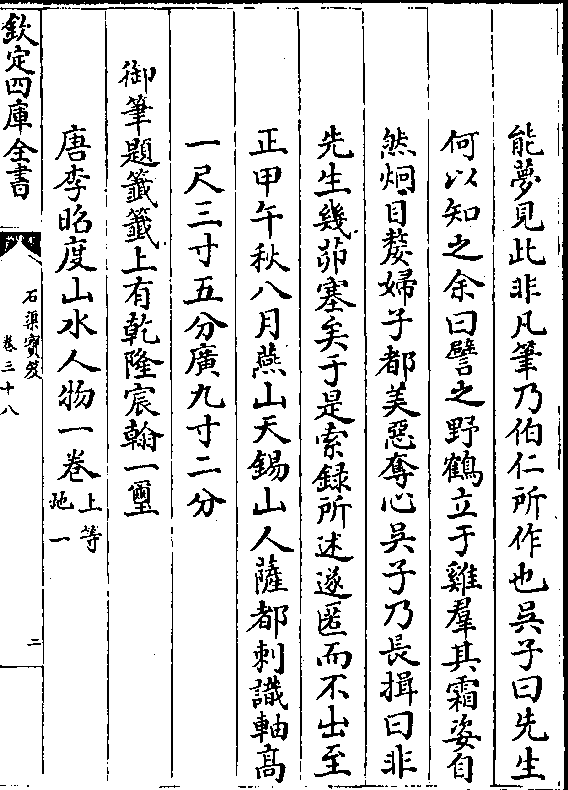 能夢見此非凡筆乃伯仁所作也吳子曰先生
何以知之余曰譬之野鶴立于雞羣其霜姿自
然炯目嫠婦子都美惡奪心吳子乃長揖曰非
先生幾茆塞矣于是索録所述遂匿而不出至
正甲午秋八月燕山天錫山人薩都刺識軸高
一尺三寸五分廣九寸二分
御筆題籤籤上有乾隆宸翰一璽
唐李昭度山水人物一卷上等地一
欽定四庫全書
石渠寳笈
卷三十八
二